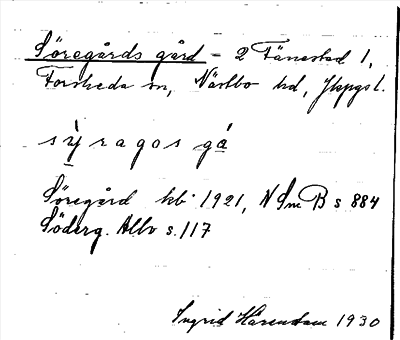 Söregårds gård - 2 Fänestad 1,
Forsheda sn, Västbo hd, Jkpgs l.
sỳragos gá
Söregård kb 1921, N Sm B s 884
Söderg. Allbo s. 117
Ingrid 1930